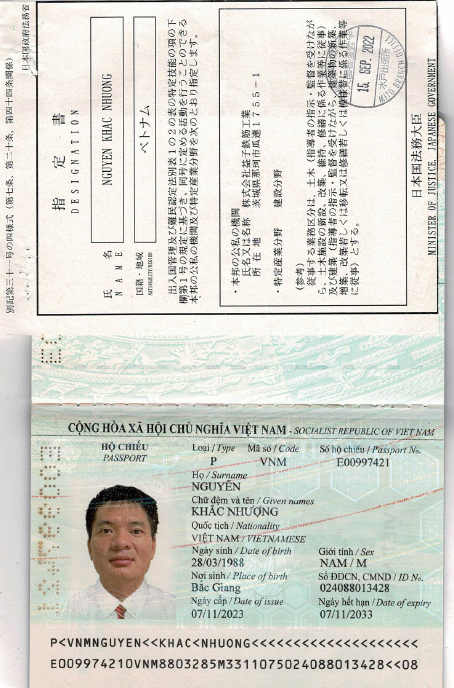 別記第三十一号の四様式（第七条、第二十条、第四十四条関係）
日本国政府法務省
指定書
DESIGNATION
氏名
NAME
NGUYEN KHAC NHUONG
国籍・地域
ベトナム
出入国管理及び難民認定法別表１の２の表の特定技能の項の下
欄第１号の規定に基づき、同号に定める活動を行うことのできる
本邦の公私の機関及び特定産業分野を次のとおり指定します。
・本邦の公私の機関
氏名又は名称 株式会社益子鉄筋工業
所在地 茨城県那珂市瓜連１７５５－１
・特定産業分野 建設分野
（参考）
従事する業務区分は、土木（指導者の指示・監督を受けなが
ら、土木施設の新設、改築、維持、修繕に係る作業等に従事）
及び建築（指導者の指示・監督を受けながら、建築物の新築、
増築、改築若しくは移転又は修繕若しくは模様替に係る作業等
に従事）とする。
15. SEP. 2022
日本国法務大臣
MINISTER OF JUSTICE, JAPANESE GOVERNMENT
CỘNG HÒA XÃ HỘI CHỦ NGHĨA VIỆT NAM - SOCIALIST REPUBLIC OF VIET NAM
HỘ CHIẾU
PASSPORT
Loại / Type Mã số / Code Số hộ chiếu / Passport No.
P VNM E00997421
Họ / Surname
NGUYỄN
Chữ đệm và tên / Given names
KHẮC NHƯỢNG
Quốc tịch / Nationality
VIỆT NAM / VIETNAMESE
Ngày sinh / Date of birth Giới tính / Sex
28/03/1988 NAM / M
Nơi sinh / Place of birth Số ĐDCN, CMND / ID No.
Bắc Giang 024088013428
Ngày cấp / Date of issue Ngày hết hạn / Date of expiry
07/11/2023 07/11/2033
P<VNMNGUYEN<<KHAC<NHUONG<<<<<<<<<<<<<<<<<<<<
E009974210VNM8803285M3311075024088013428<<08